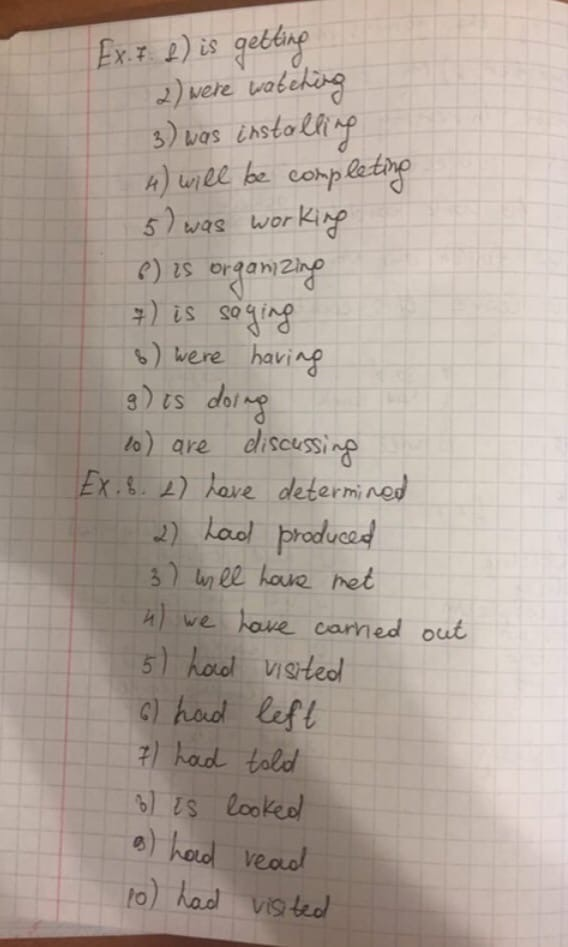 Ex.7. 1) is getting
2) were watching
3) was installing
4) will be completing
5) was working
6) is organizing
7) is saying
8) were having
9) is doing
10) are discussing
Ex.8. 1) have determined
2) had produced
3) will have met
4) we have carried out
5) had visited
6) had left
7) had told
8) is looked
9) had read
10) had visited